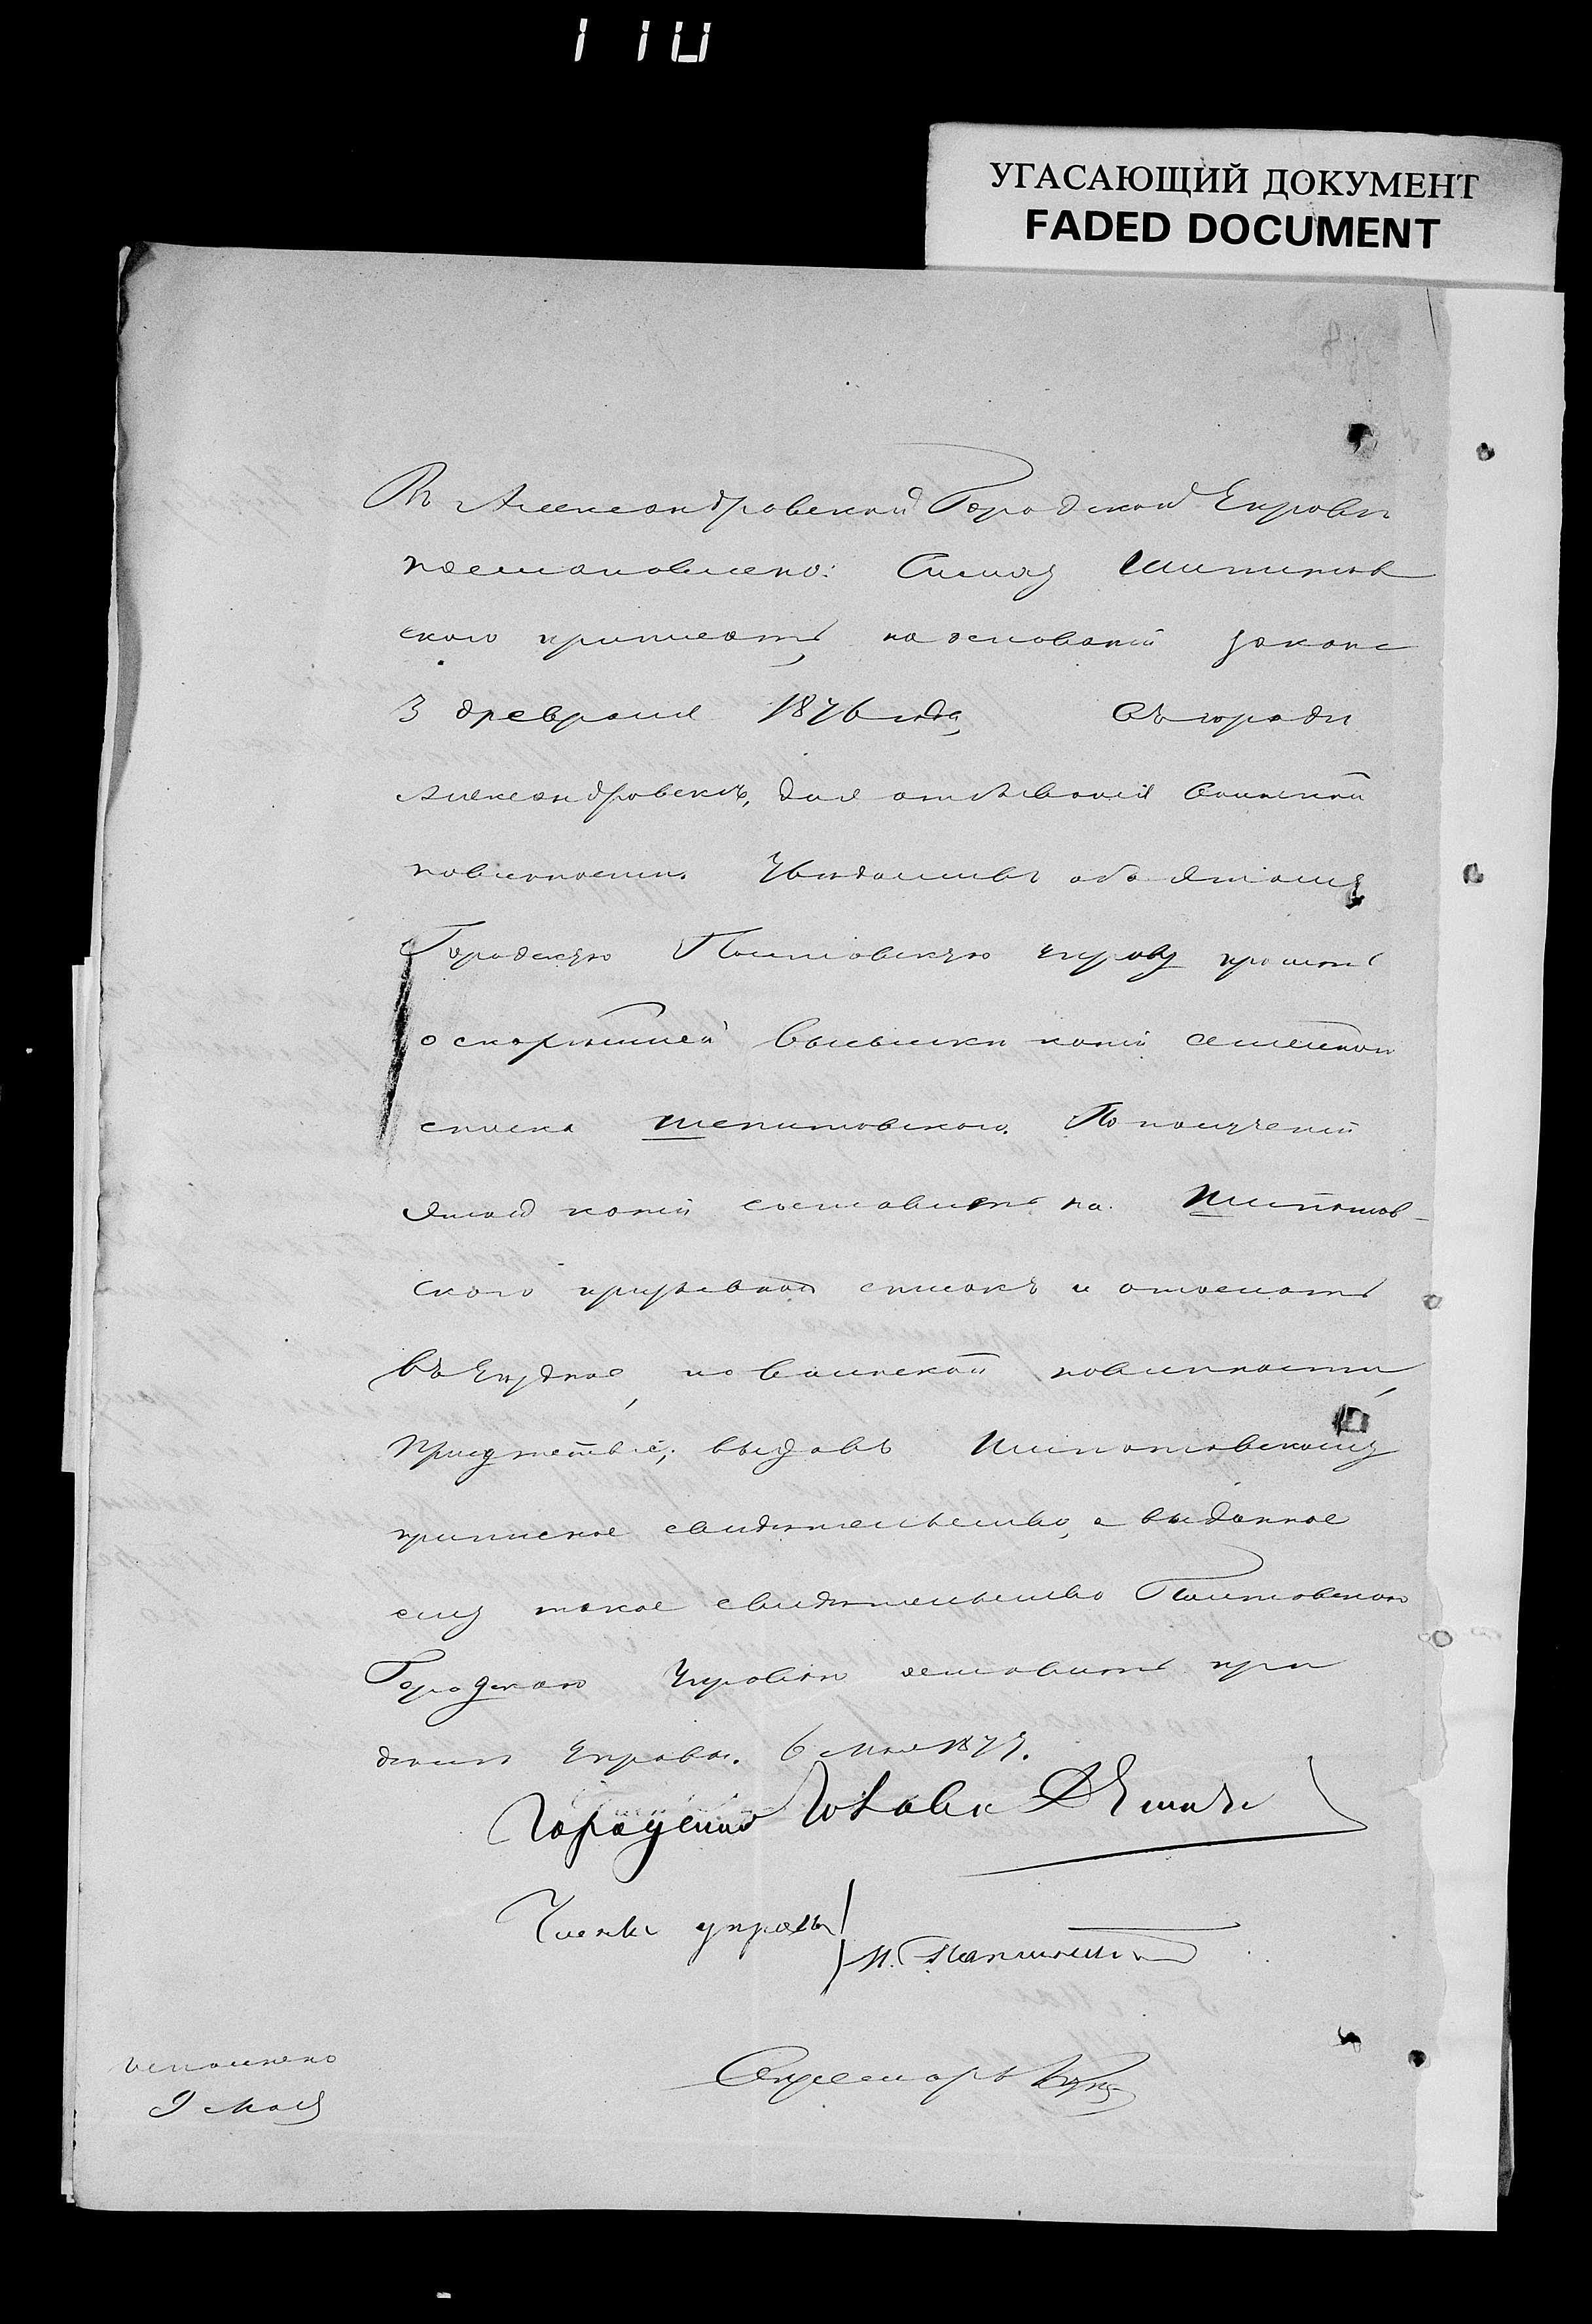 110
УГАСАЮЩИЙ ДОКУМЕНТ
FADED DOCUMENT
Въ Александровской Городской Управѣ
постановлено: Симху Шипитов
скаго приписать, на основаніи закона
3 февраля 1876 года, въ городѣ
Александровскѣ, для отбыванія воинской
повинности. Увѣдомивъ объ этомъ
Городскую Полтовскую Управу просить
о скорѣйшей высылкѣ копіи семейнаго
списка Шепитовскаго. По полученіи
этой копіи составить на Шипитов-
скаго призывной списокъ и отослать
въ Уѣздное, по воинской повинности,
Присутствіе; выдавъ Шипитовскому
приписное свидѣтельство, а выданное
ему такое свидѣтельство Полтовскою
Городскою Управою оставить при
дѣлахъ Управы. 6 Мая 1877.
Городской Голова
Члены управы
Секретарь
исполнено
9 Мая